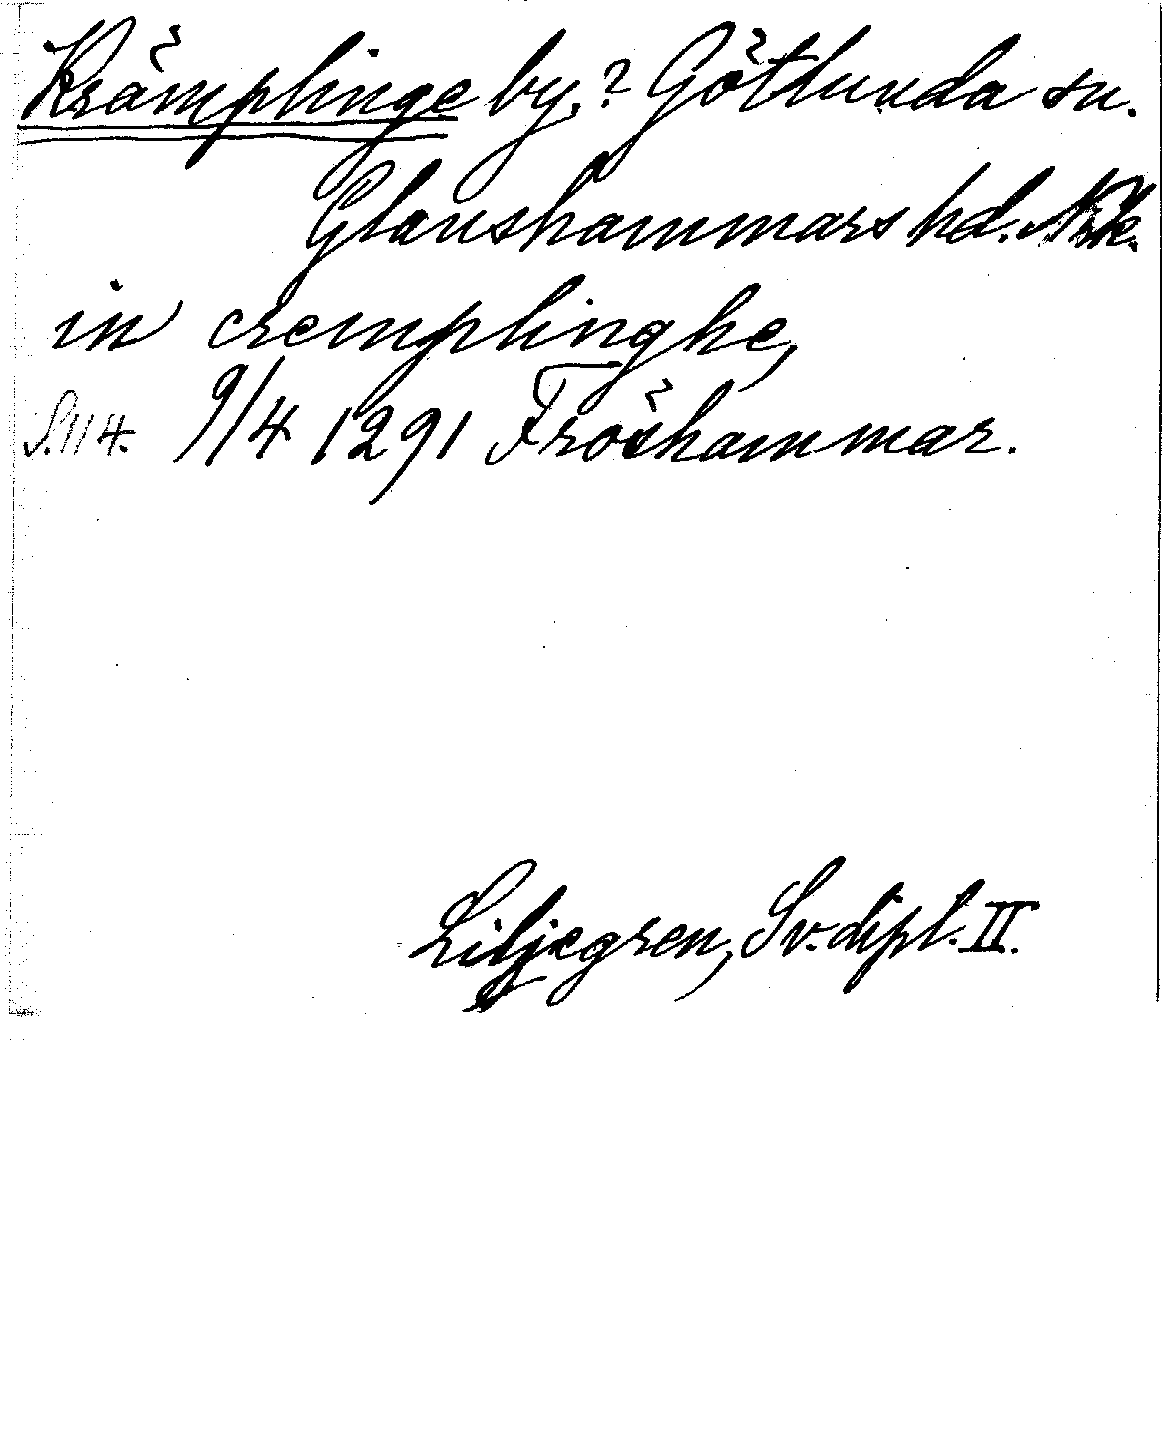 Krämplinge by.? Götlunda sn.
Glanshammars hd. Nrk.
in cremplinghe,
S. 114. 9/4 1291 Fröshammar.
Liljegren, Sv. dipl. II.